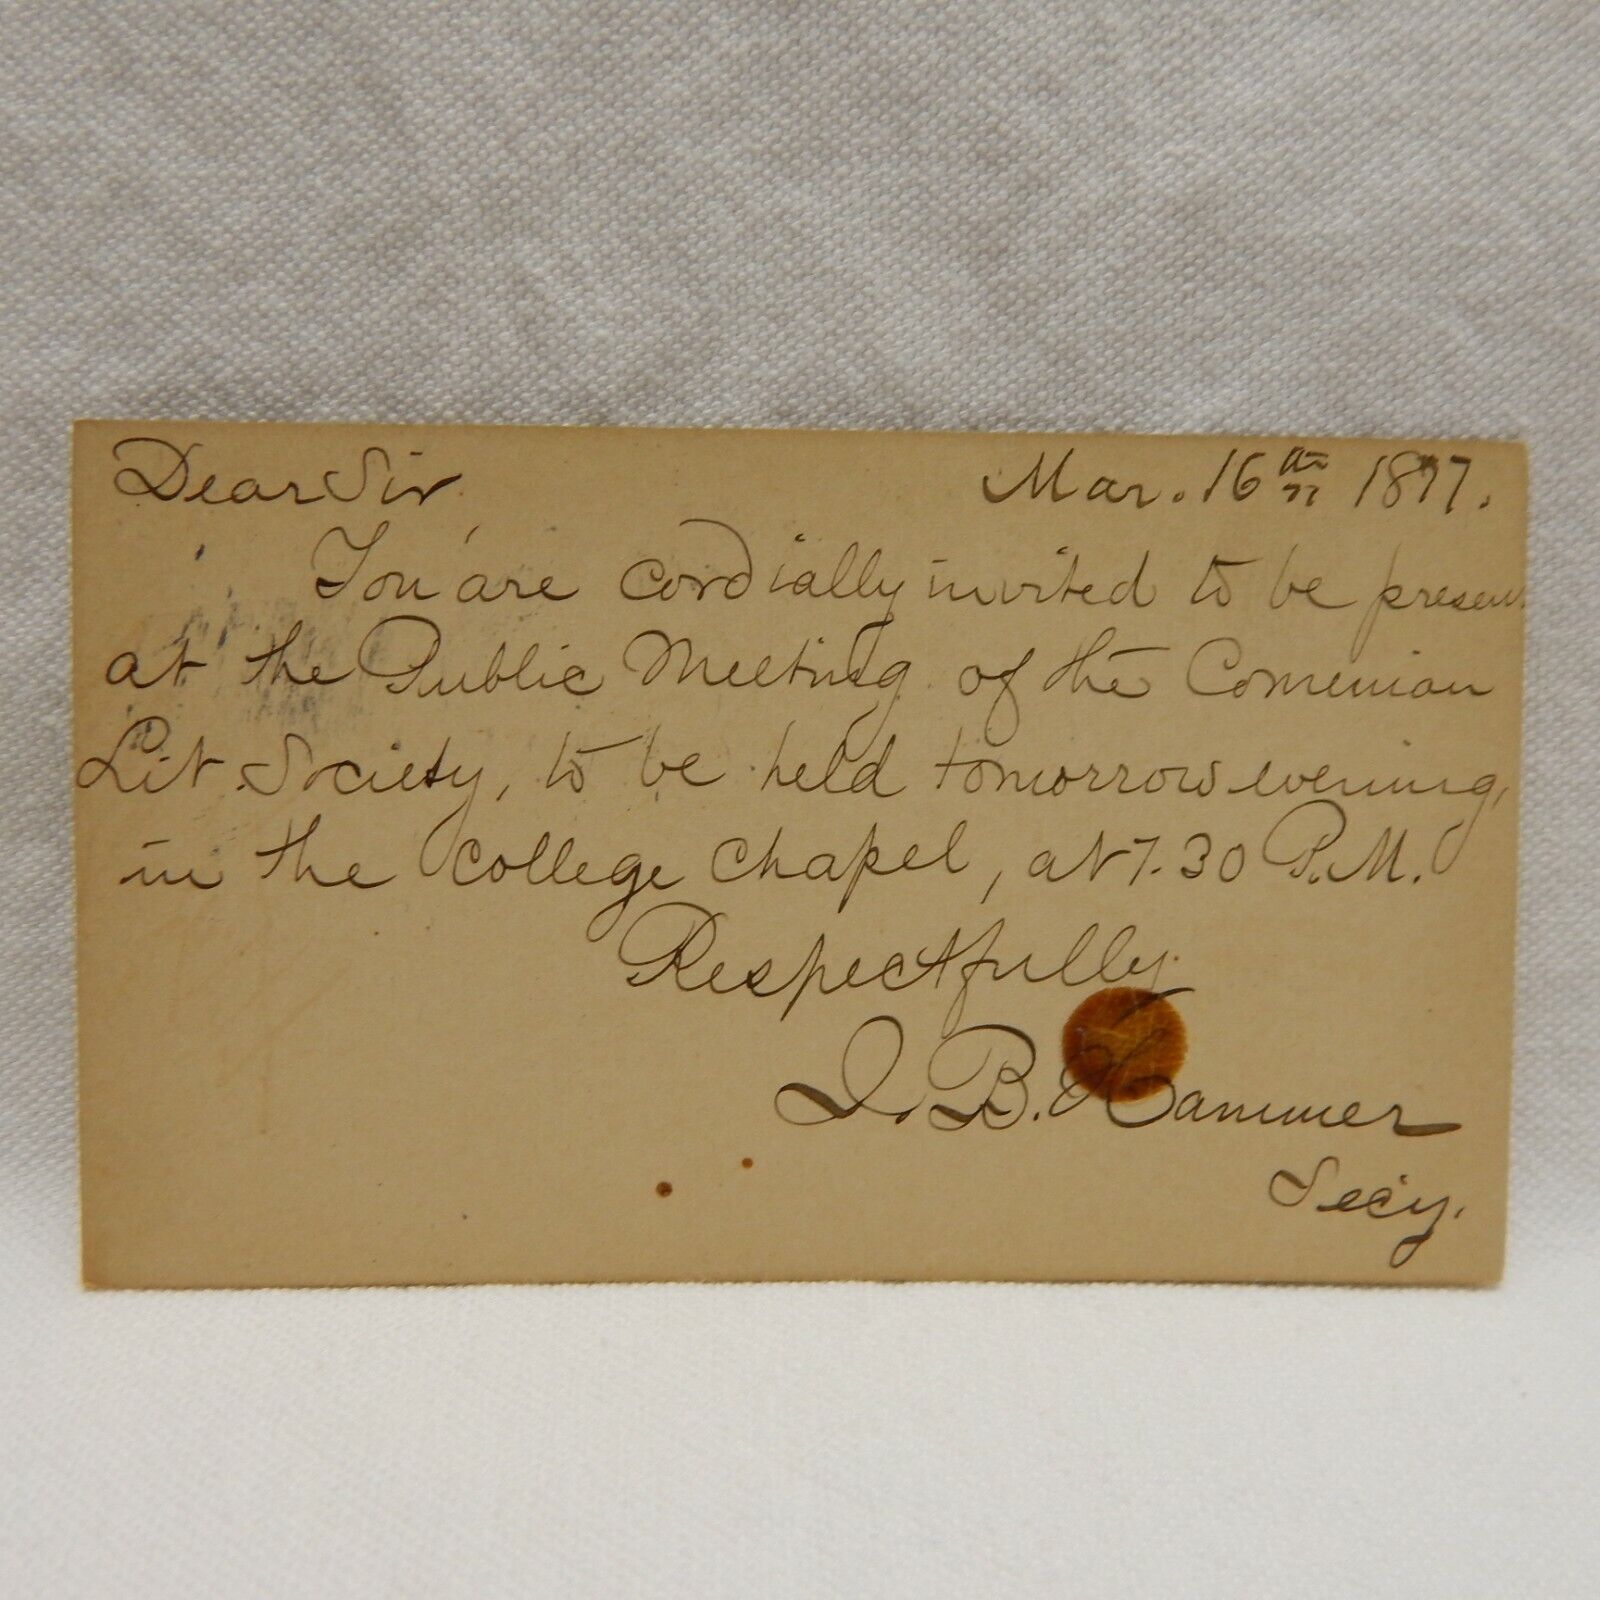 Dear Sir. Mar. 16th 1877.
You are cordially invited to be present
at the Public Meeting of the Comenian
Lit. Society, to be held tomorrow evening,
in the College Chapel, at 7.30 P.M.
Respectfully
J. B. Hammer
Secy.